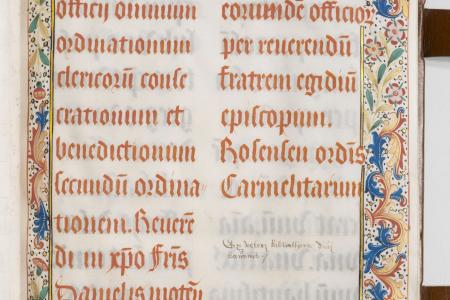 officij diuinum
ordinationum
clericorū conse
crationum et
benedictionum
secundū ordina
tionem. Reuerē
dum xpō Fris
Danielis moteñ
eorumdē officior
per reuerendū
fratrem egidiū
episcopum.
Rosensen ordīs
Carmelitarum